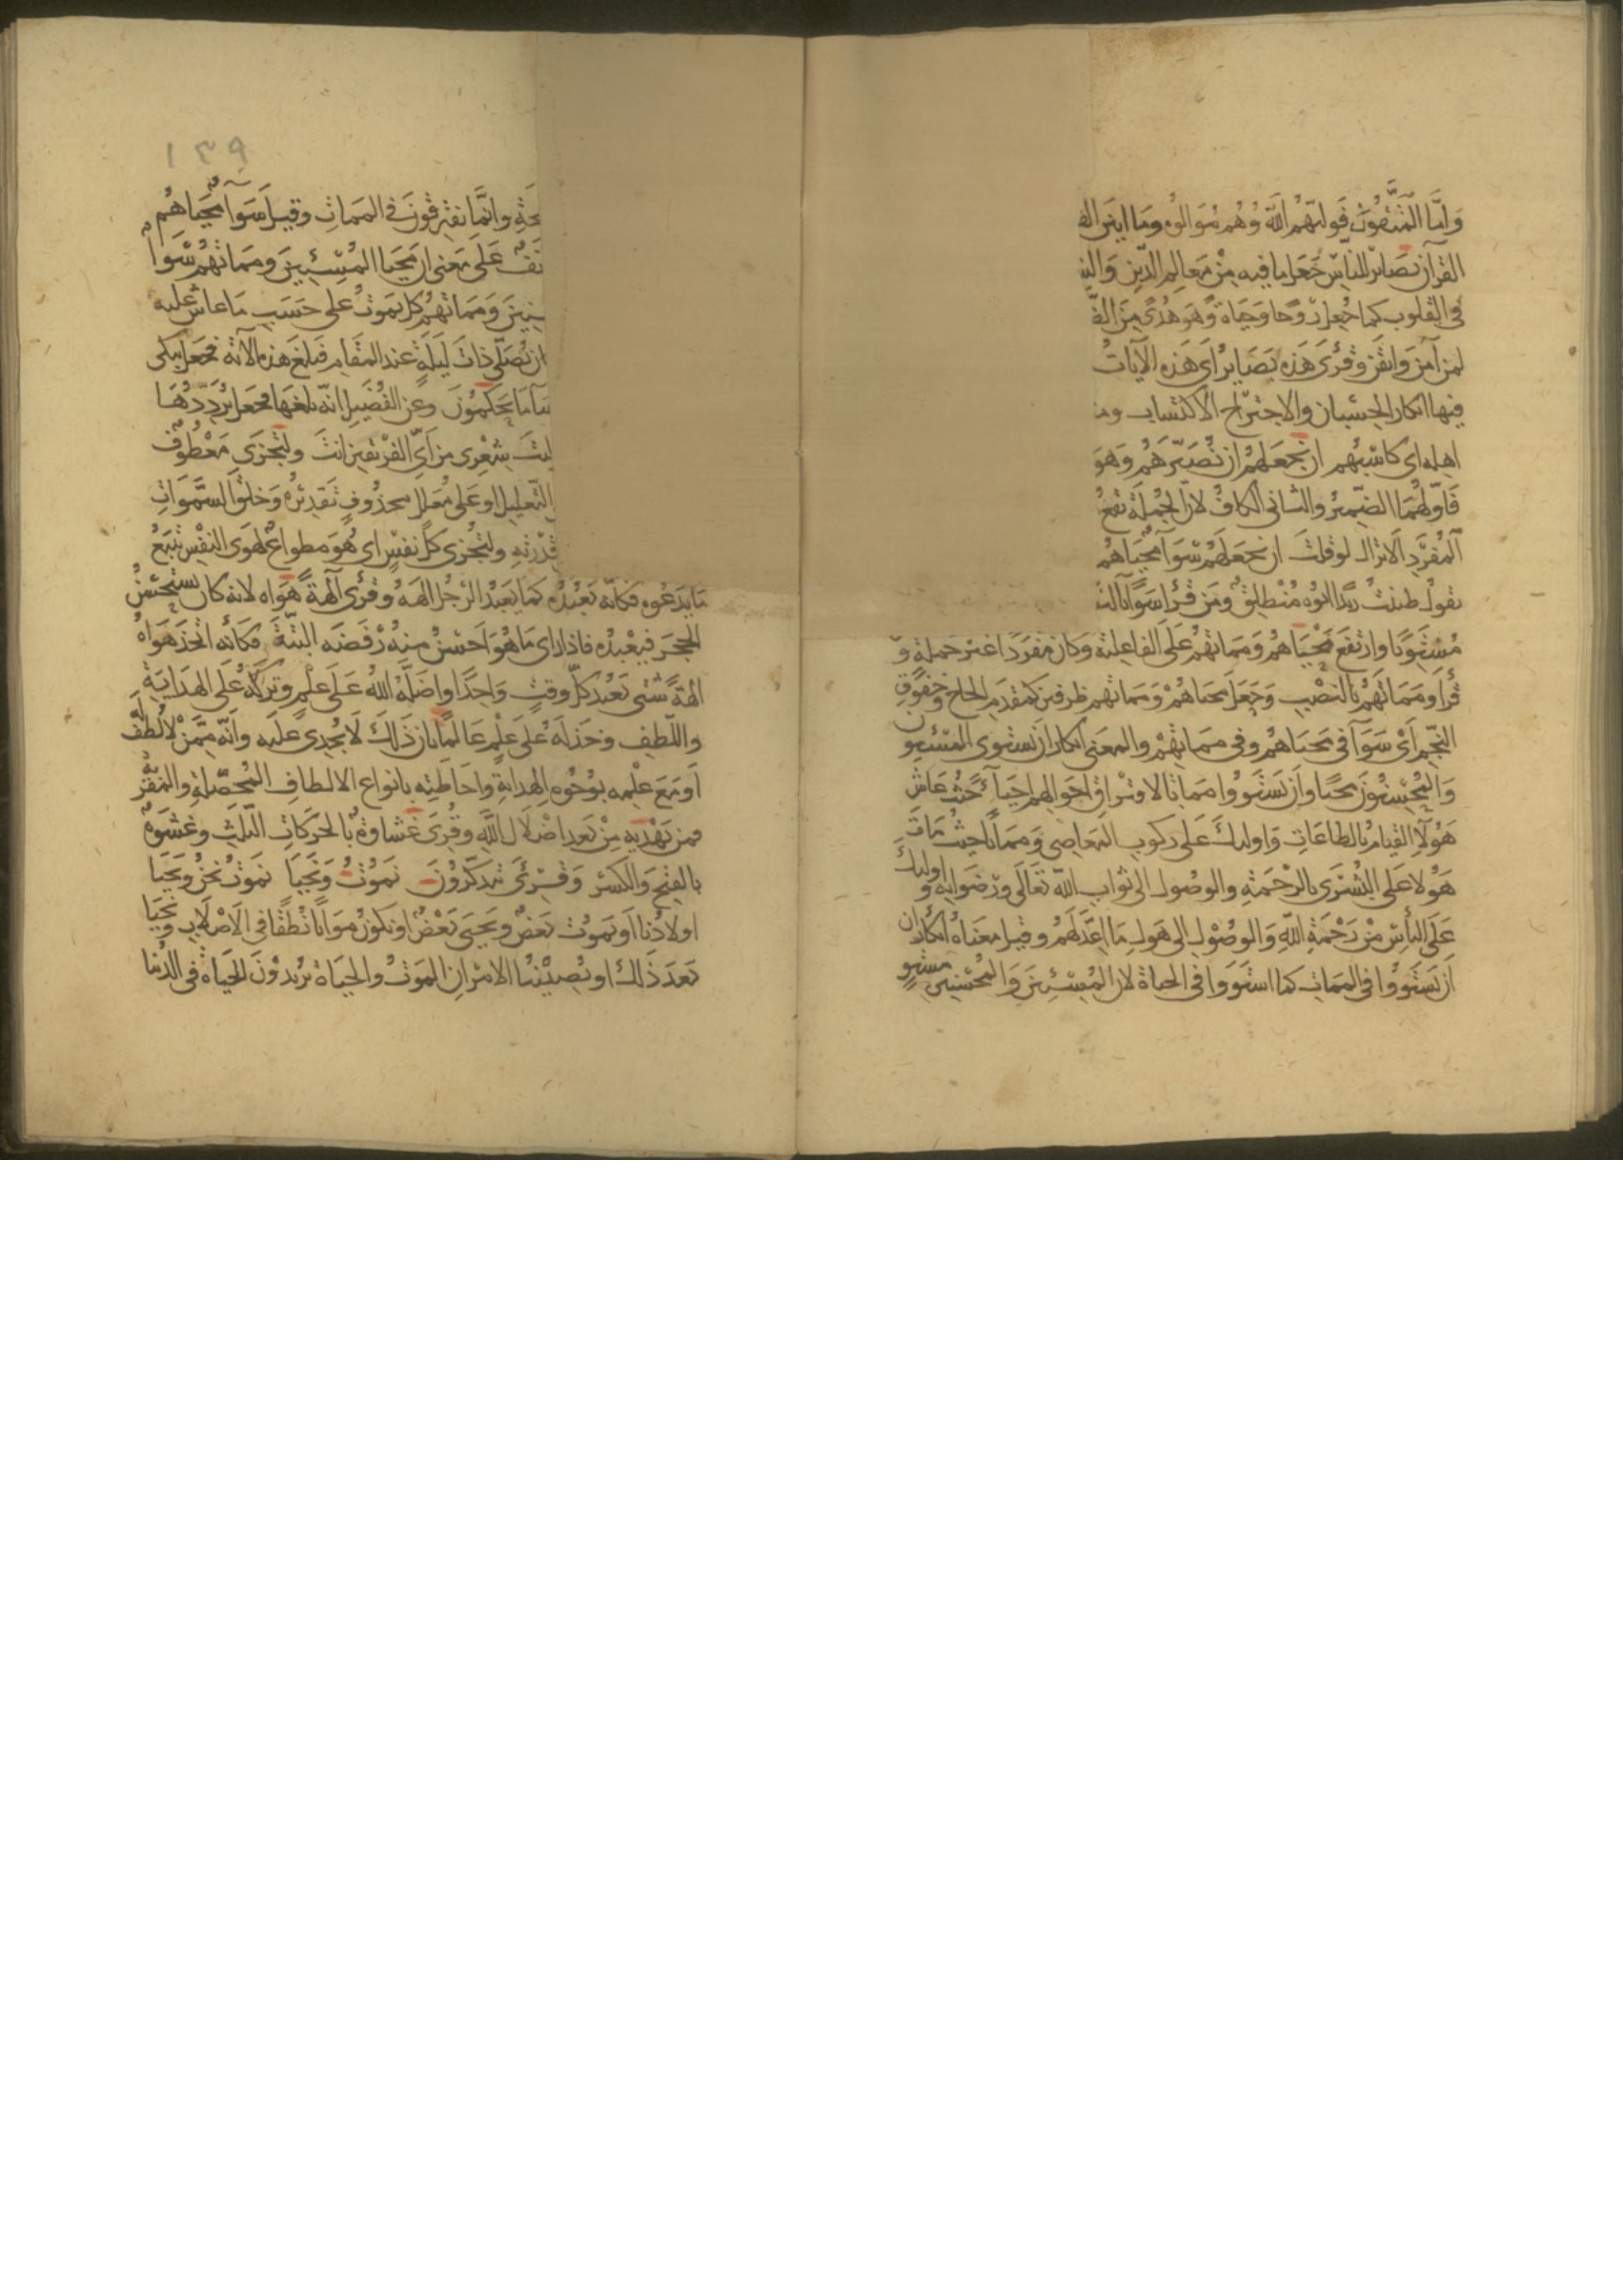 وَامَّا المُتَّقُونَ فَوليّهُم اللَّه وَهُم مُوَالُوه وَمَا ابيَن الف
القرآن بَصَائر للنَاسِّ جَعَل ما فيه مِنْ مَعَالم الدّين وَالش
فى القلوب كما جُعِل رُوحًا وحَيَاة وَهو هُدًى مِنَ الضّ
لمن آمَن وَايقَن وقُرئَ هَذه بَصَاير اى هَذه الآيَاتُ
فيها انكار الحِسْبان والاجترَاح الاكتسَاب ومن
اهله اى كاسبُهم ان نجعَلهُم ان نُصَيّرَهُم وَهوَ
فَاوّلهُمَا الضّميرُ والثانى الكافُ لانّ الجُملَة تقعُ
المُفرَدِ الا تراك لو قلتَ ان نجعَلهُم سَوَآ مَحيَاهُم
تقول ظننتُ زيدًا ابُوه مُنْطلِقٌ ومَن قرأ سَوَآءً بالن
مُسْتَوِيًا وارتفَعَ مَحْيَاهُم وَمَمَاتهُم عَلَى الفاعِلية وَكان مفرَدًا غير جملة و
قُرأ وَمَمَاتَهُم بالنَصْبِ وَجَعَل محيَاهُمْ وَمَمَاتهم ظرفين كمقدَم الحاج وخُفُوقِ
النجّم اىْ سَوَآ فى محيَاهُم وفى ممَاتِهِمْ والمعنى انكار ان يستوى المسيئون
وَالمُحْسِنوُنَ محيًا وان يَسْتَوُوا مماتًا لافتراق احوالهم احيَآءً حَيْثُ عَاش
هَؤلآ القيَام بالطاعَاتِ وَاوليك عَلى ركوب المعَاصِى وَممَاتًا حيثُ مَاتَ
هَؤلا عَلى البُشرَى بالرحْمَةِ والوصُول الى ثواب اللَّه تعَالَى ورضْوَانِه و اوليكَ
عَلَى اليأسِ مِنْ رَحْمَةِ اللَّهِ وَالوصُولِ الى هَول مَا اعِدَّ لَهُم وقيل معنَاهُ انكار ان
ان يَستَوُوا فى الممَاتِ كما استَوَوا فى الحياة لانّ المُسِيْئِينَ وَالمُحْسِنِين مستوٍ
حّةِ وانَّمَا يفترقُونَ فى الممَاتِ وقيل سَوَآءٌ مَحيَاهُم
نَفٌ عَلَى مَعنى ان محيَا المُسِيْئِينَ وممَاتهُم سَوَآءٌ
سِنِينَ وَمَمَاتهُم كل يَموتُ على حَسَبِ مَا عاشَ عليه
ان يُصَلّى ذاتَ لَيلَةٍ عند المقَام فَبلغَ هذه الآية فجعَل يبكى
سَآ مَا يَحكمُونَ وعن الفُضَيل انّه بلغها فجعَل يُرَدّدُهَا
ليتَ شِعْرِى من اَىّ الفَرْيقين انتَ ولتُجْزَى مَعْطُوفٌ
التعليل او عَلى مُعَلل محذُوفٍ تَقديرُه وَخلقَ السَّمَوَاتِ
قُدْرَتِهِ ولتُجْزى كلّ نفسٍ اى هُوَ مطواعٌ لهَوى النفْس يَتبَعُ
مَا يَدعُوه فكانّه يَعْبُدُه كما يَعبُد الرَجُل الهَهُ وقُرئَ آلهةً هَوَاه لانه كان يَستَحْسِنُ
الحجَرَ فيَعْبدُه فاذا راى مَا هُوَ احسَنُ منهُ رفَضَه البتَّةَ فكانه اتخذ هَوَاهُ
الهةً شتَّى يَعبُد كلّ وقتٍ وَاحِدًا واضَلَّهُ اللَّهُ عَلَى علْمٍ وتركهُ عَلَى الهدَايَةِ
واللّطفِ وخذلَهُ عَلَى عِلْمٍ عَالمًا بان ذَلكَ لَا يُجدِى عليه وَانّه ممّنْ لا لُطفَ لَه
اَو مَعَ عِلْمِهِ بوُجُوه الهِدايةِ وَاحَاطَتِه بانواع الالطاف المُحصِّلة والمقَرّ
فمن يَهْديهِ مِنْ بَعد اضْلالِ اللَّهِ وقُرئَ غشاوة بالحَركاتِ الثلث وغشوَةً
بالفتح والكَسْر وَقُرئَ تتذكّرُونَ نمُوتُ وَنَحْيَا نمُوتُ نحنُ ويَحيَا
اولادُنا او يَموت بَعضٌ ويَحيَى بَعْضٌ او نكونُ مَوَاتًا نُطفًا فى الاصْلَابِ ونحيَا
بَعدَ ذَلك او يُصيْبُنَا الامْرَانِ الموَتُ والحيَاة يُريدُوْنَ الحَيَاة فى الدُنيا
١٣٩